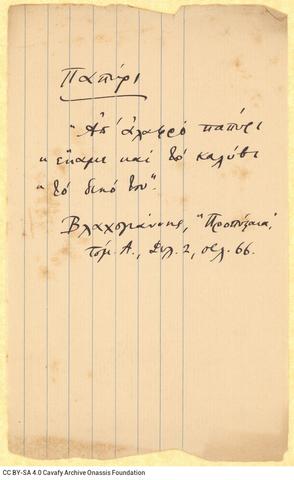 Παπύρι
"Απ' αλαφρό παπύρι
" έκαμε και το καλύβι
" το δικό του".
Βλαχογιάννης, "Προπύλαια",
τόμ. Α., Φυλ. 2, σελ. 66.
CC BY-SA 4.0 Cavafy Archive Onassis Foundation